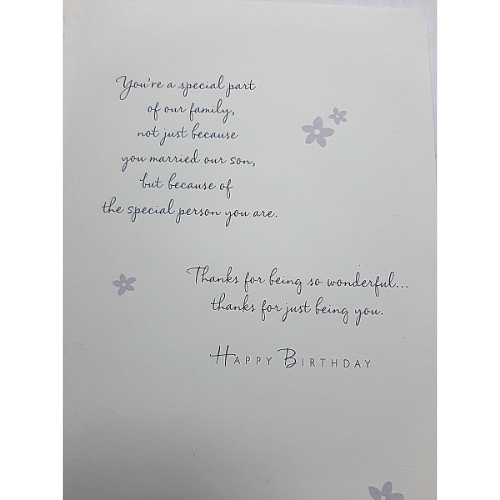 You're a special part
of our family,
not just because
you married our son,
but because of
the special person you are.
Thanks for being so wonderful...
thanks for just being you.
HAPPY BIRTHDAY